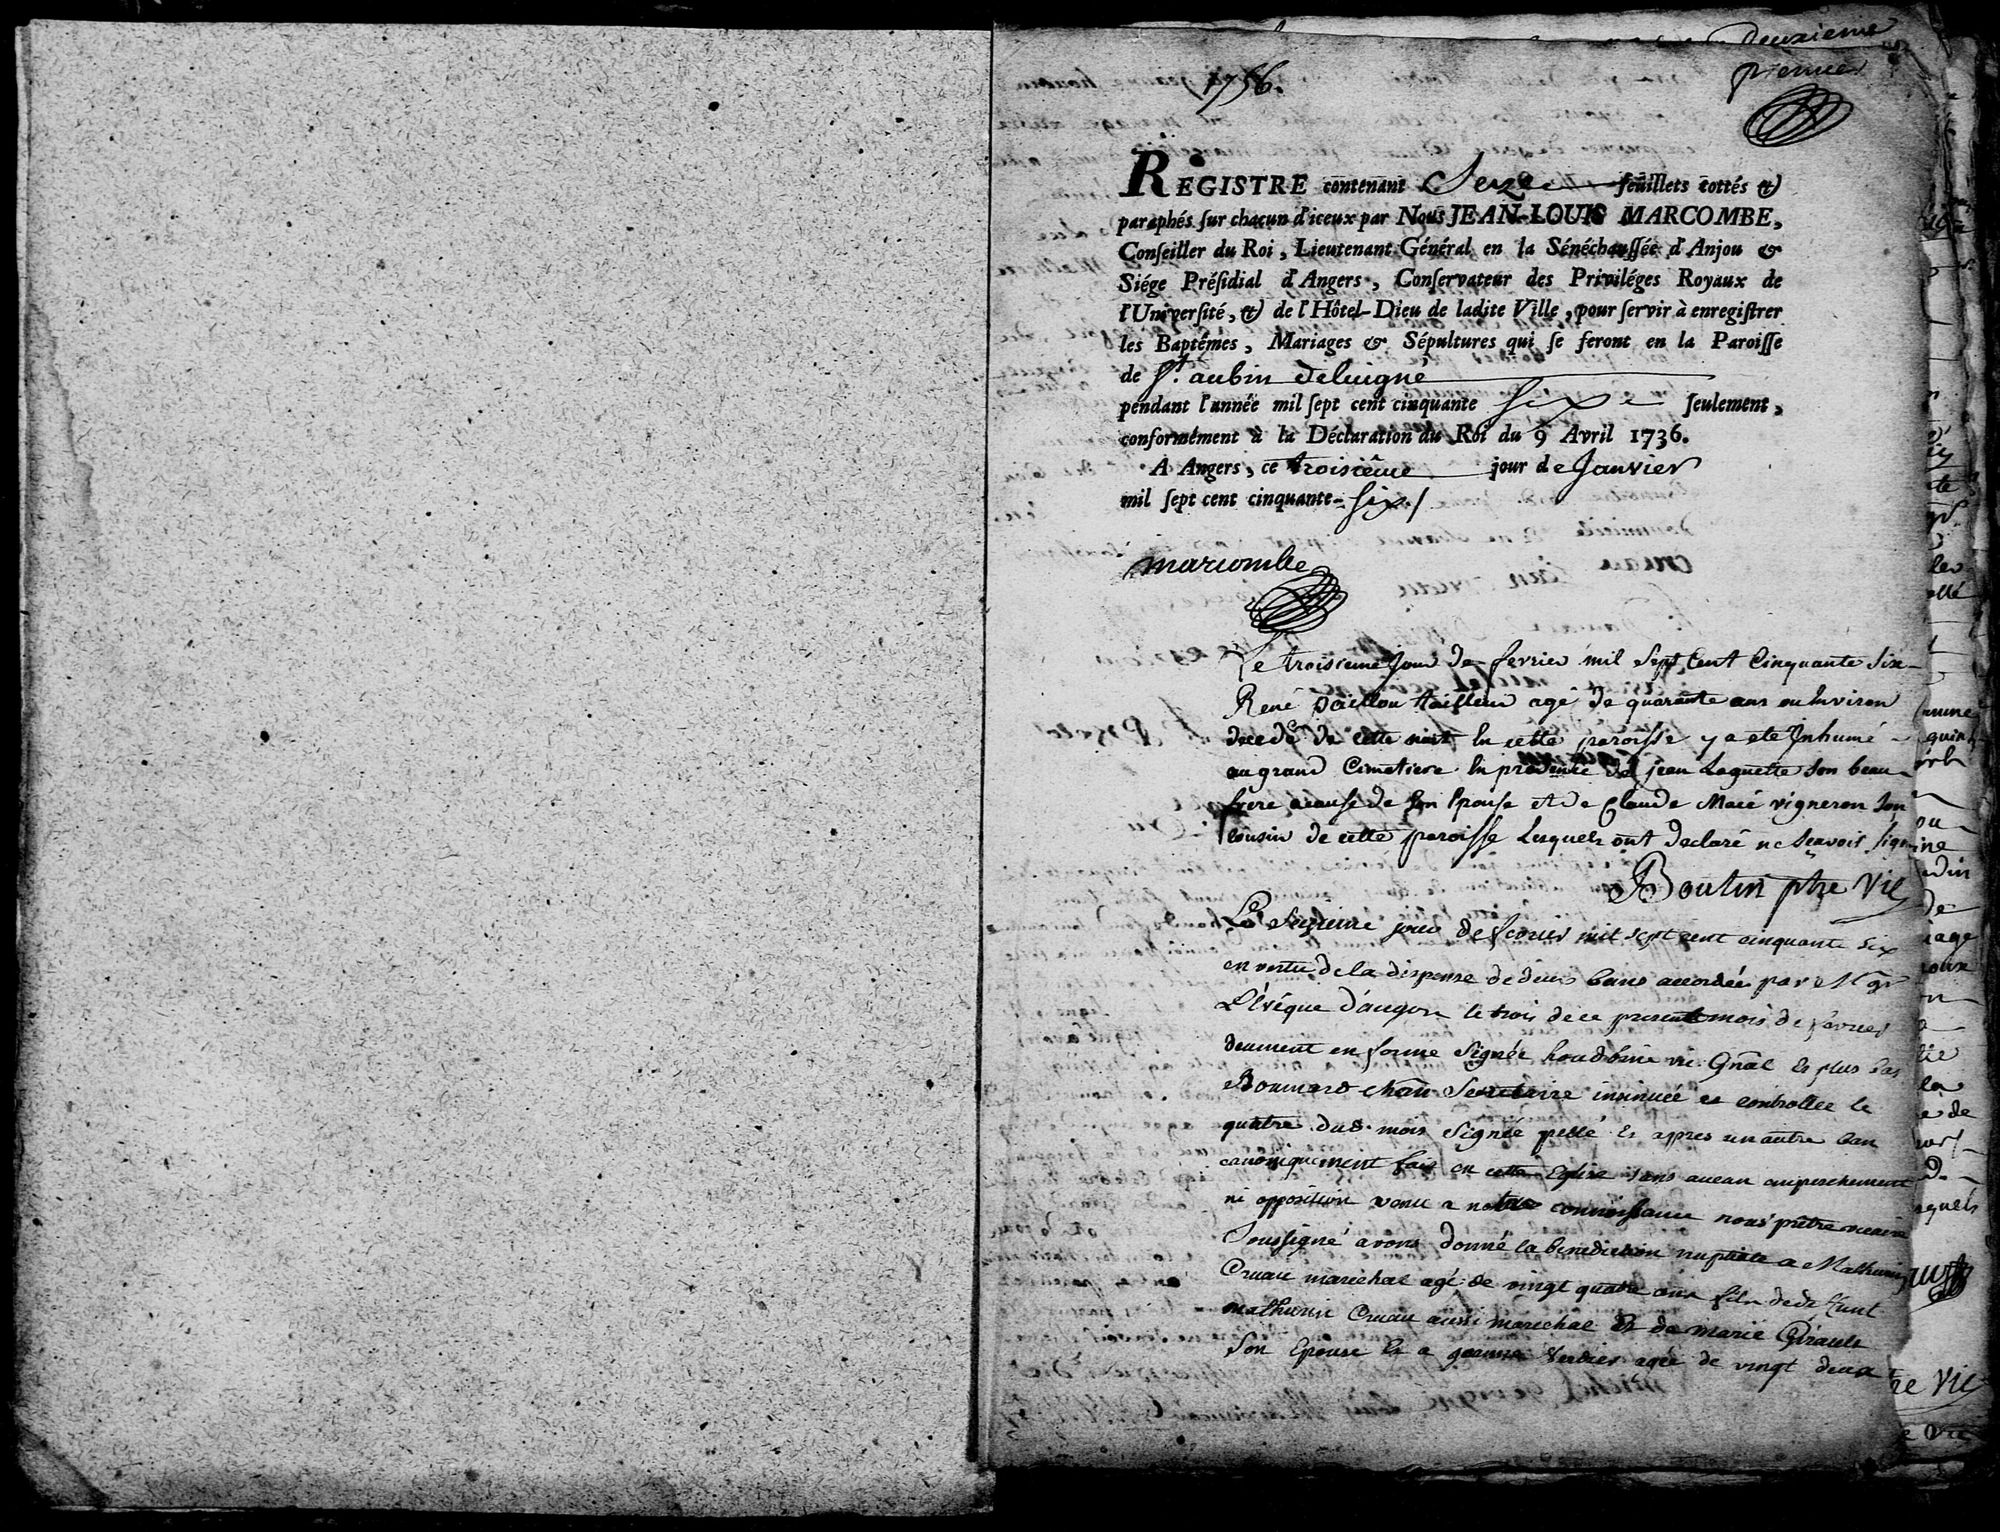 Deuxieme
1756.
premier
REGISTRE contenant Seize feuillets cottés &
paraphés sur chacun d'iceux par Nous JEAN-LOUIS MARCOMBE,
Conseiller du Roi, Lieutenant Général en la Sénéchaussée d'Anjou &
Siége Présidial d'Angers, Conservateur des Priviléges Royaux de
l'Université, & de l'Hôtel-Dieu de ladite Ville, pour servir à enregistrer
les Baptêmes, Mariages & Sépultures qui se feront en la Paroisse
de St. aubin deluigné
pendant l'année mil sept cent cinquante six seulement,
conformément à la Déclaration du Roi du 9 Avril 1736.
A Angers, ce troisiême jour de Janvier
mil sept cent cinquante-six /
marcombe
Le troisieme Jour de fevrier mil Sept Cent Cinquante Six
René paillou tailleur agé de quarante ans ou Environ
decedé de cette nuit En cette paroisse y a eté Inhumé
au grand Cimetiere En presence de jean Laguette Son beau
frere a cause de Son Epouse et de Claude Macé vigneron Son
Cousin de cette paroisse Lesquels ont declaré ne Scavoir Signer
Boutin ptre Vic
Le Seizieme jour de fevrier mil sept cent cinquante six
en vertu de la dispense de deux bans accordée par Mgr
L'évêque d'angers le trois de ce present mois de fevrier
deument en forme Signée houdbine vic. Gnâl & plus bas
Boumard Secretaire insinuée et controllée le
quatre dud. mois Signée pellé & apres un autre ban
canoniquement fait en cette Eglise sans aucun empeschement
ni opposition venu a notre connoissance nous prêtre vicaire
Soussigné avons donné la benediction nuptiale a Mathurin
Cruau maréchal agé de vingt quatre ans fils de defunt
mathurin Cruau aussi marechal & de marie Girault
Son Epouse & a jeanne Verdier agée de vingt deux